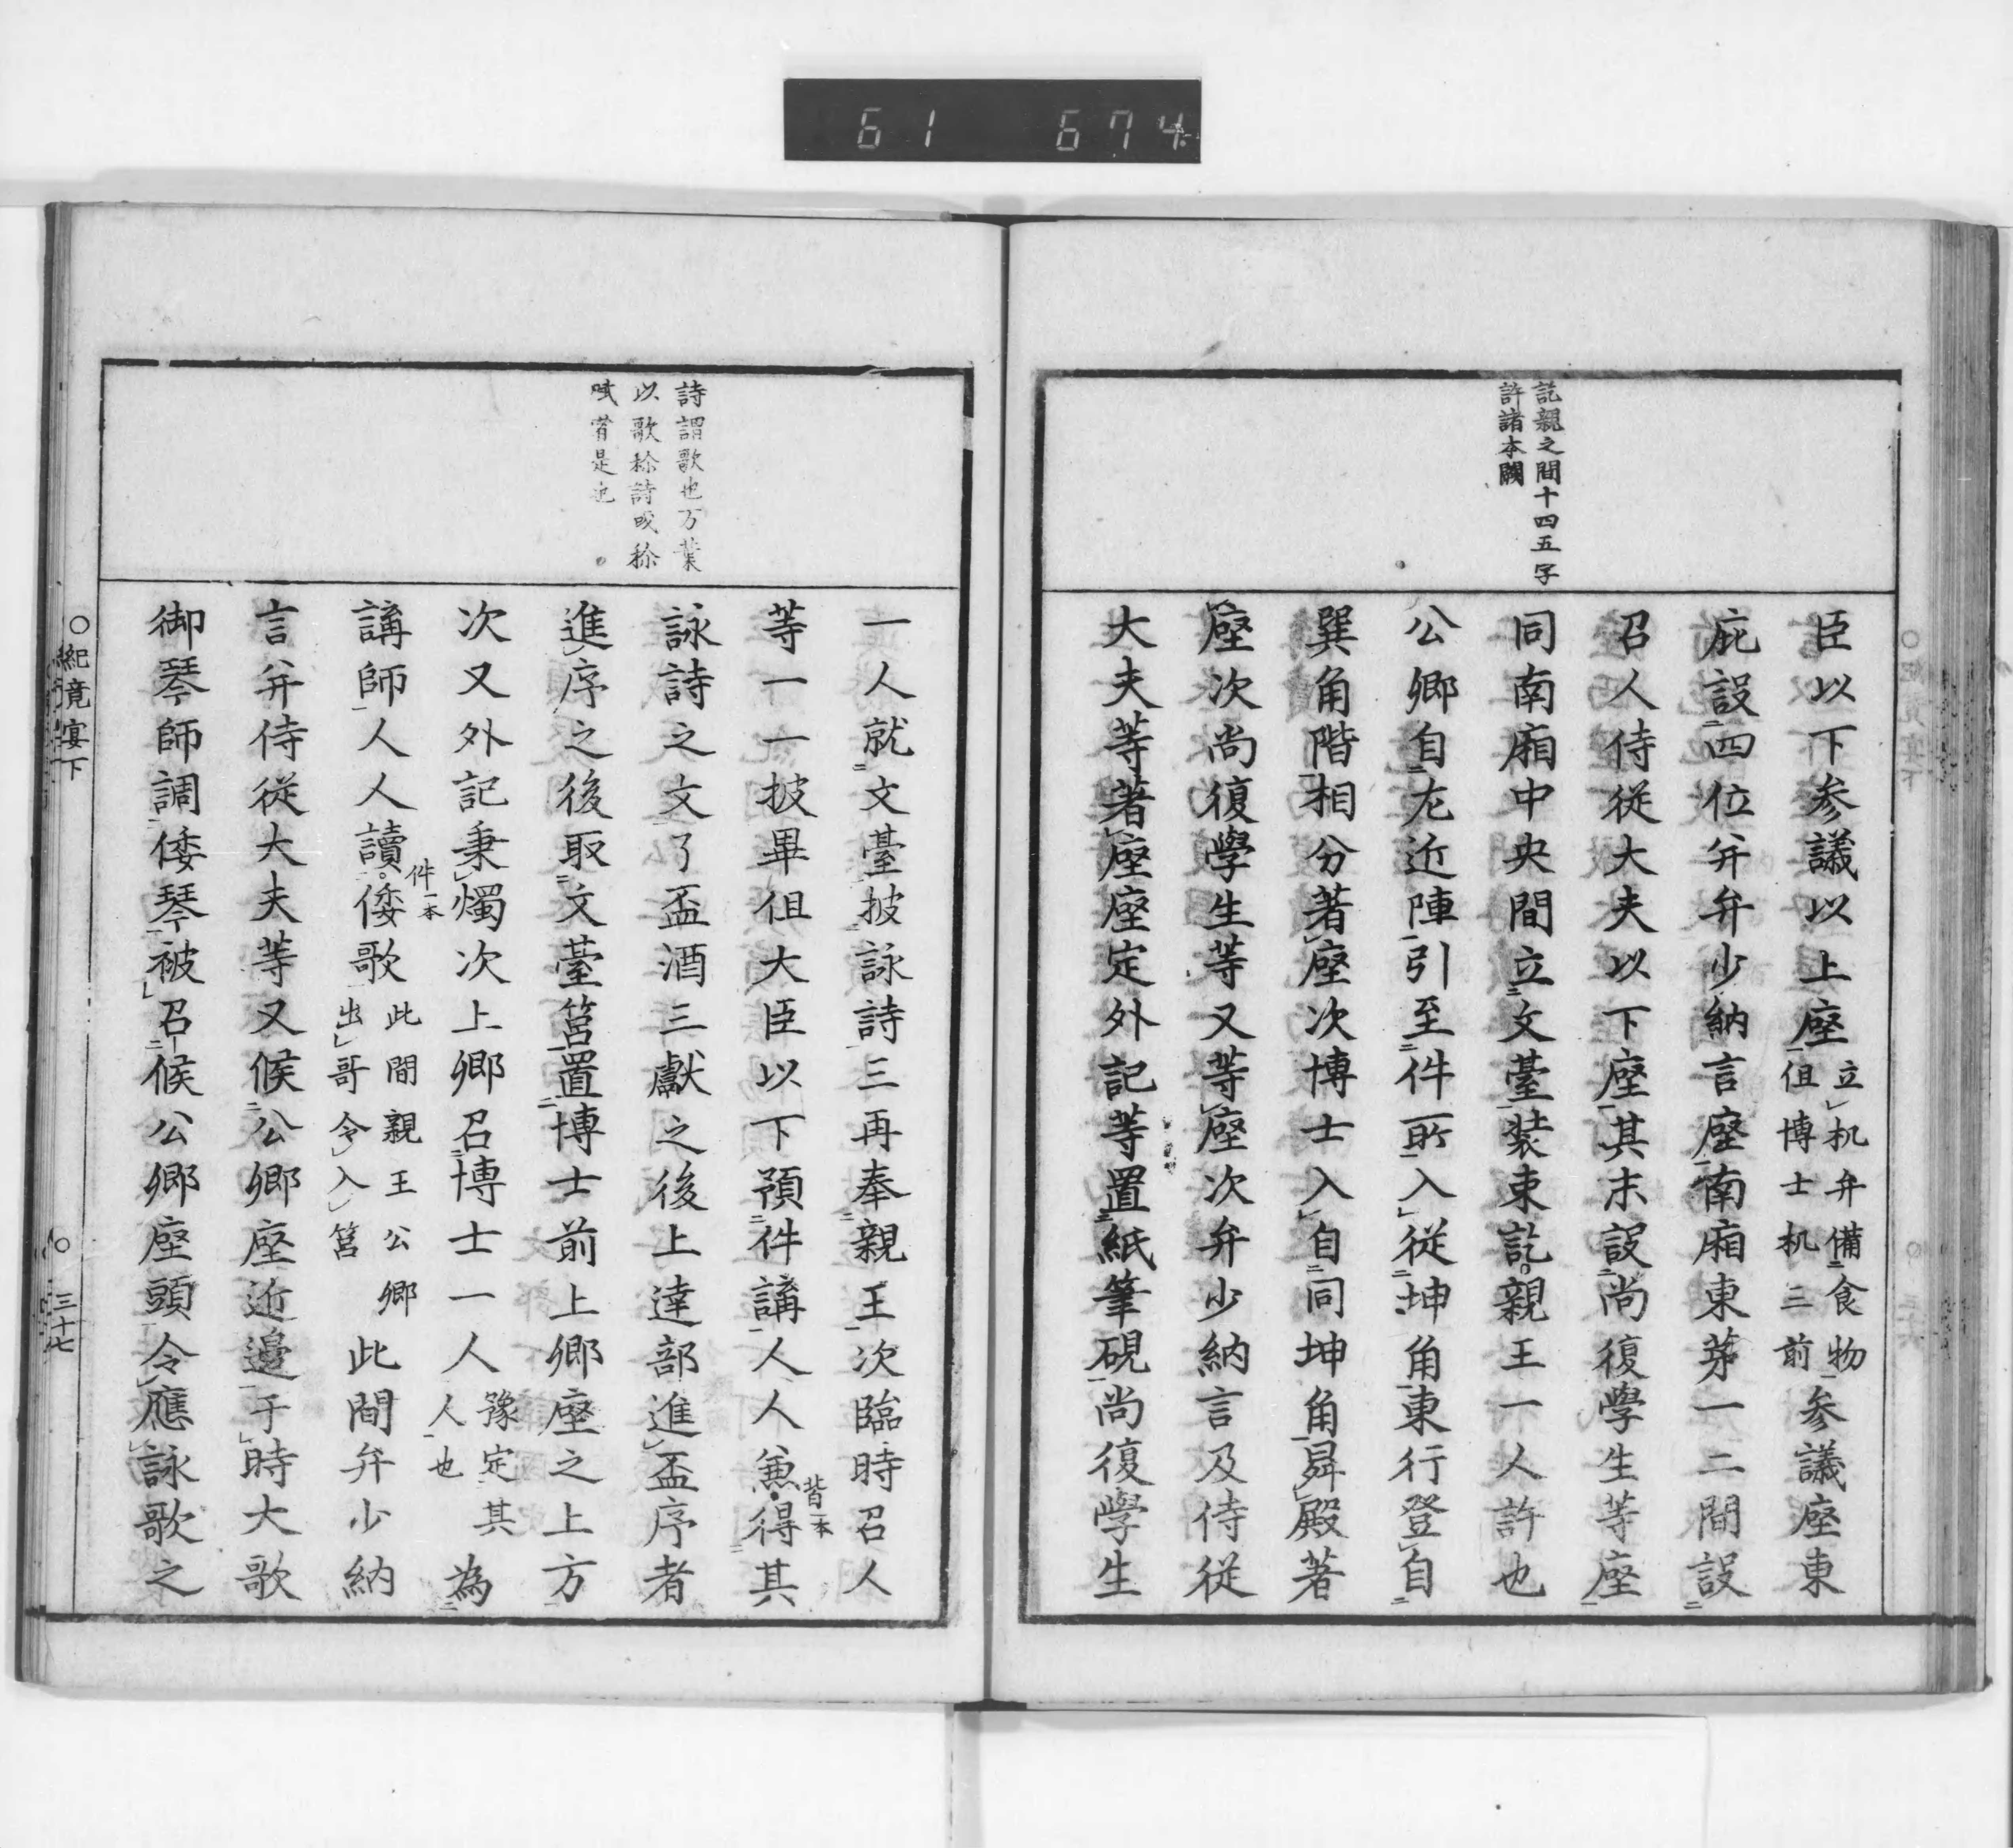 61 674
訖親之間十四五字
許諸本闕
臣以下参議以上座立机弁備食物但博士机三前参議座東
庇設四位弁弁少納言座南廂東茅一二間設
召人侍従大夫以下座其末設尚復學生等座
同南廂中央間立文臺装束訖親王一人許也
公卿自左近陣引至件所入従坤角東行登自
巽角階相分著座次博士入自同坤角舁殿著
座次尚復學生等又等座次弁少納言及侍従
大夫等著座座定外記等置紙筆硯尚復學生
詩謂歌也万葉
以歌称詩或称
賦甞是也
一人就文臺披詠詩三再奉親王次臨時召人
等一一披畢但大臣以下預件講人人兼得其
皆一本
詠詩之文了盃酒三獻之後上達部進盃序者
進序之後取文臺筥置博士前上卿座之上方
次又外記秉燭次上卿召博士一人豫定其人也為
講師人人讀倭歌此間親王公卿出哥令入筥此間弁少納
件一本
言弁侍従大夫等又候公卿座近邊于時大歌
御琴師調倭琴被召候公卿座頭令應詠歌之
○紀竟宴下 ○三十七